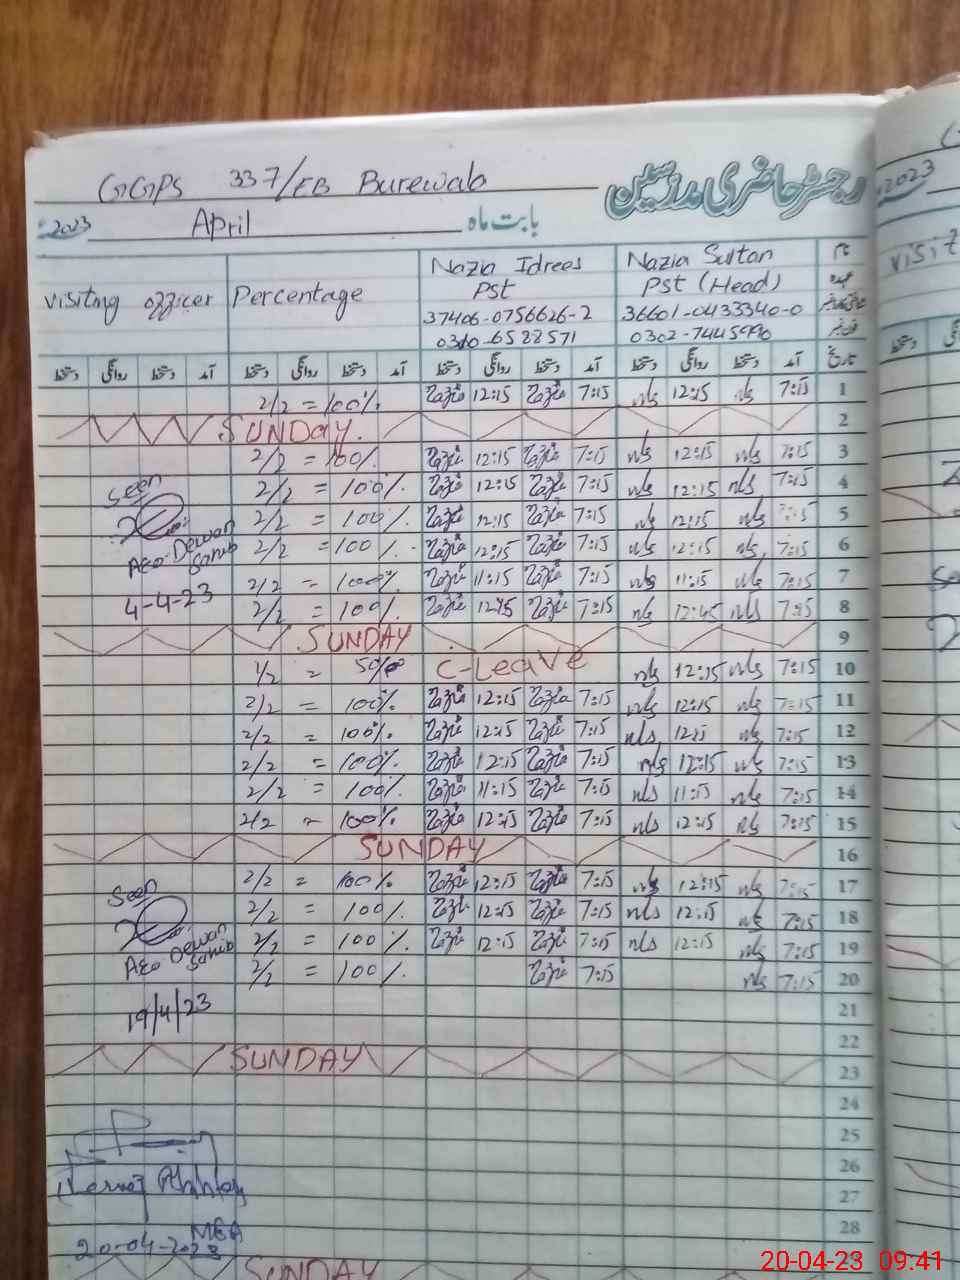 GGPS 337/EB Burewala
رجسٹر حاضری مدرسین
2023 April بابت ماہ
visiting officer Percentage Nazia Idrees Nazia Sultan نام
Pst Pst (Head) عہدہ
37406-0756626-2 36601-0433340-0
0310-6588571 0302-7445990
دستخط روانگی دستخط آمد دستخط روانگی دستخط آمد دستخط روانگی دستخط آمد دستخط روانگی دستخط آمد تاریخ
2/2 = 100% Nazia 12:15 Nazia 7:15 nls 12:15 nls 7:15 1
SUNDAY. 2
2/2 = 100% Nazia 12:15 Nazia 7:15 nls 12:15 nls 7:15 3
seen 2/2 = 100% Nazia 12:15 Nazia 7:15 nls 12:15 nls 7:15 4
2/2 = 100% Nazia 12:15 Nazia 7:15 nls 12:15 nls 7:15 5
Aeo Dewan Sahib 2/2 = 100% Nazia 12:15 Nazia 7:15 nls 12:15 nls 7:15 6
2/2 = 100% Nazia 11:15 Nazia 7:15 nls 11:15 nls 7:15 7
4-4-23 2/2 = 100% Nazia Nazia 7:15 nls 12:45 nls 7:15 8
SUNDAY 9
1/2 = 50% C-Leave nls 12:15 nls 7:15 10
2/2 = 100% Nazia 12:15 Nazia 7:15 nls 12:15 nls 7:15 11
2/2 = 100% Nazia 12:15 Nazia 7:15 nls 12:15 nls 7:15 12
2/2 = 100% Nazia 12:15 Nazia 7:15 nls 12:15 nls 7:15 13
2/2 = 100% Nazia 11:15 Nazia 7:15 nls 11:15 nls 7:15 14
2/2 = 100% Nazia 12:15 Nazia 7:15 nls 12:15 nls 7:15 15
SUNDAY 16
seen 2/2 = 100% Nazia 12:15 Nazia 7:15 nls 12:15 nls 7:15 17
2/2 = 100% Nazia 12:15 Nazia 7:15 nls 12:15 nls 7:15 18
Aeo Dewan Sahib 2/2 = 100% Nazia 12:15 Nazia 7:15 nls 12:15 nls 7:15 19
2/2 = 100% Nazia 7:15 nls 7:15 20
19/4/23 21
22
SUNDAY 23
24
25
26
27
MEA 28
20-04-2023
SUNDAY
2023
visit
20-04-23 09:41